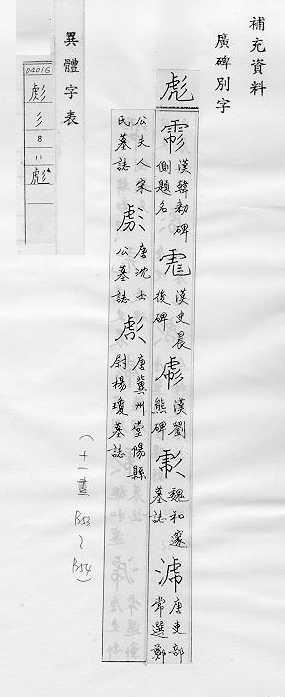 補充資料
廣碑別字
彪
漢韓勑碑側題名
漢史晨後碑
漢劉熊碑
魏和邃墓誌
唐吏部常選鄭
公夫人宋氏墓誌
唐沈士公墓誌
唐冀州堂陽縣尉楊瓊墓誌
(十一畫 P.53~P.54)
異體字表
04016
彡
8
11
彪